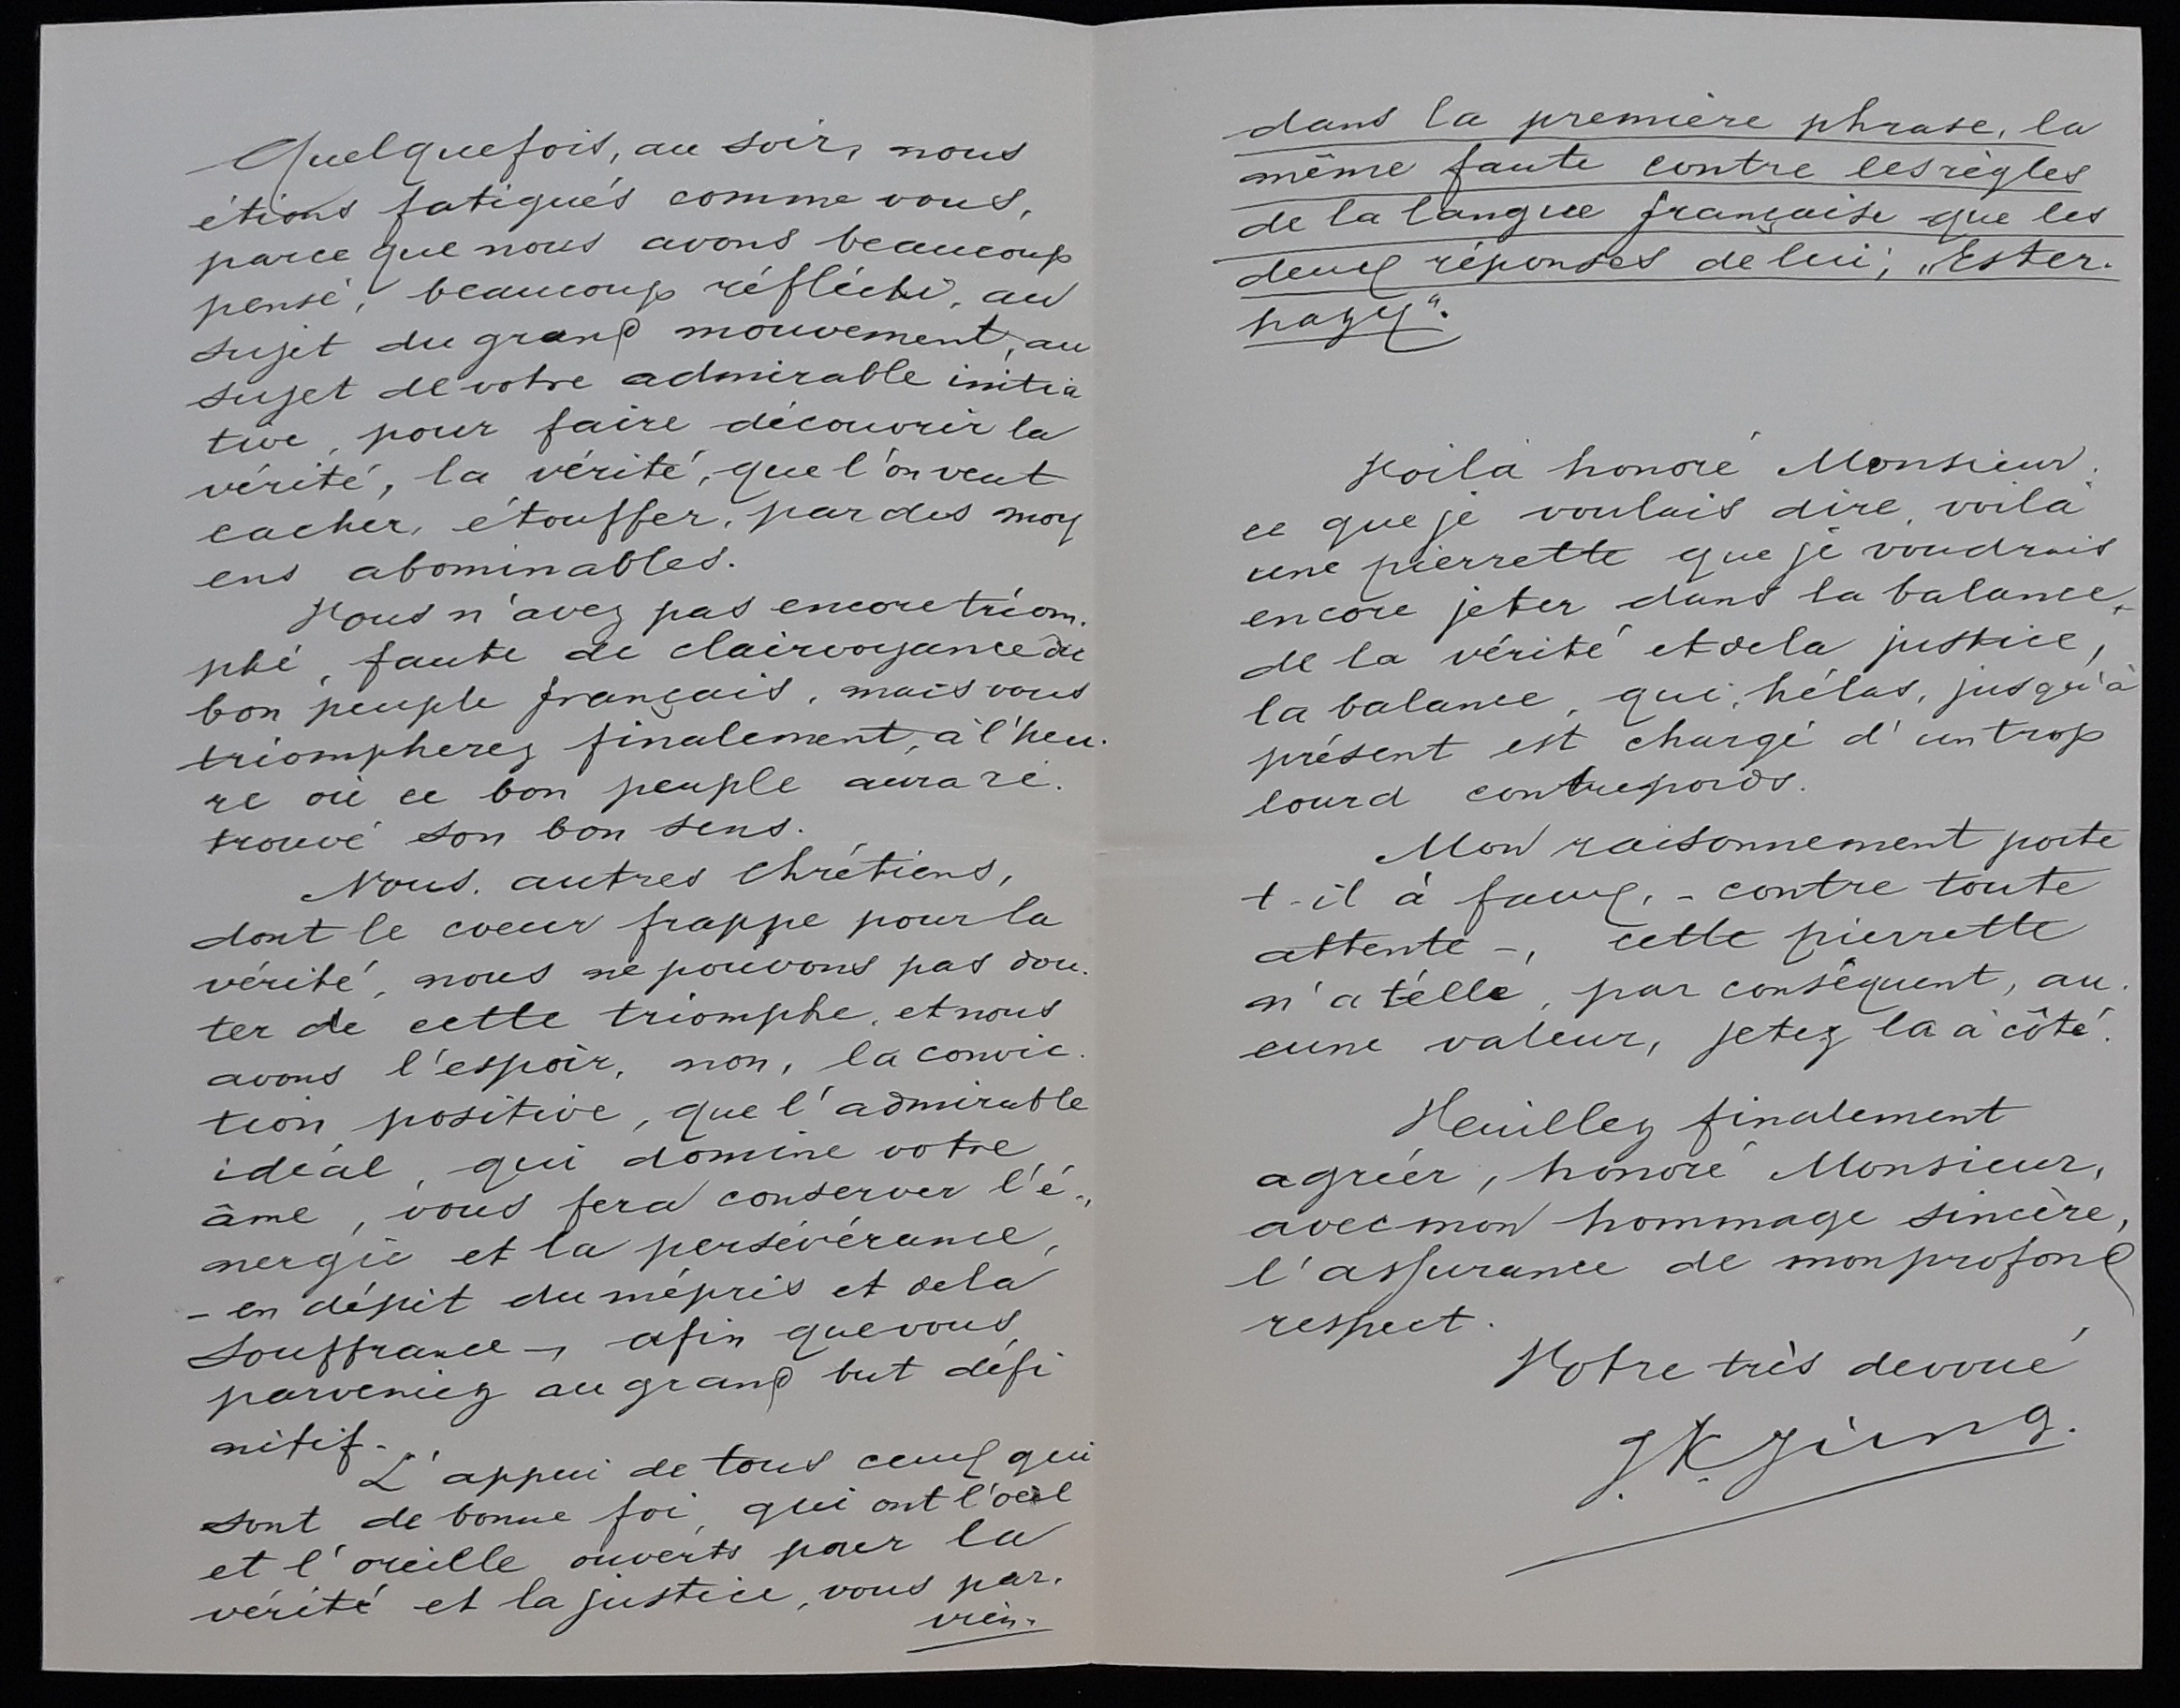 Quelquefois, au soir, nous
étions fatigués comme vous,
parce que nous avons beaucoup
pensé, beaucoup réfléchi, au
sujet du grand mouvement, au
sujet de votre admirable initia
tive, pour faire découvrir la
vérité, la vérité, que l'on veut
cacher, étouffer, par des moy
ens abominables.
Vous n'avez pas encore triom.
phé, faute de clairvoyance du
bon peuple français, mais vous
triompherez finalement, à l'heu.
re où ce bon peuple aura re.
trouvé son bon sens.
Nous, autres Chrétiens,
dont le coeur frappe pour la
vérité, nous ne pouvons pas dou.
ter de cette triomphe, et nous
avons l'espoir, non, la convic.
tion positive, que l'admirable
idéal, qui domine votre
âme, vous fera conserver l'é-
nergie et la persévérance,
- en dépit du mépris et de la
souffrance -, afin que vous
parveniez au grand but défi
nitif.
L'appui de tous ceux qui
sont de bonne foi, qui ont l'oeil
et l'oreille ouverts pour la
vérité et la justice, vous par.
vien.
dans la première phrase, la
même faute contre les règles
de la langue française que les
deux réponses de lui; „Ester.
hazy“.
Voilà honoré Monsieur.
ce que je voulais dire, voilà
une pierrette que je voudrais
encore jeter dans la balance,
de la vérité et de la justice,
la balance, qui, hélas, jusqu'à
présent est chargé d'un trop
lourd contrepoids.
Mon raisonnement porte
t-il à faux, - contre toute
attente -, cette pierrette
n'a télle, par conséquent, au.
cune valeur, jetez la à côté.
Veuillez finalement
agréer, honoré Monsieur,
avec mon hommage sincère,
l'assurance de mon profond
respect.
Votre très devoué